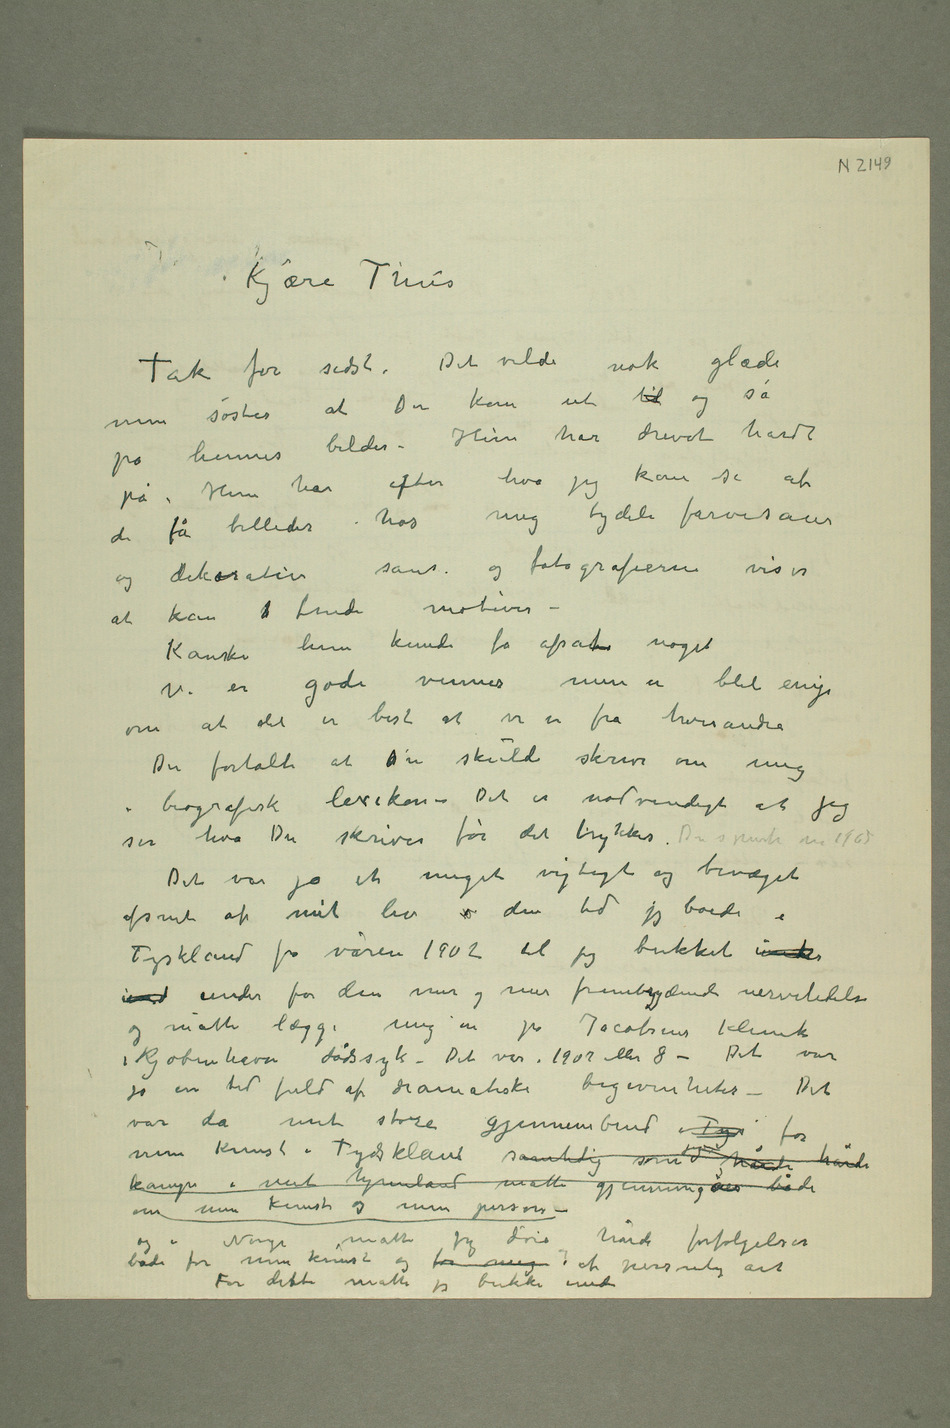 N 2149
Kjære Thiis
Tak for sidst. Det vilde nok glæde
min søster at Du kom ut til og så
på hennes bilder – Hun har drevet hardt
på. Hun har efter hva jeg kan se af
de få billeder hos mig tydeli farvesans
og dekorativ sans. og fotografierne viser
at kan finde motiver –
Kanske hun kunde få afsat noget
Vi er gode venner men er blet enige
om at det er best at vi er fra hverandre
Du fortalte at Du skulde skrive om mig
i biografisk lexikon – Det er nødvendigt at jeg
ser hva Du skriver før det trykkes. Du spurte 1908
Det var jo et meget vigtigt og bevæget
afsnit af mit liv den tid jeg boede i
Tyskland fra våren 1902 til jeg bukket under
ind under for den mer og mer frembrydende nervelidelse
og måtte lægge mig in på Jacobsens Klinik
i Kjøbenhavn dødssyk – Det var i 1907 eller 8 – Det var
jo en tid fuld af dramatiske begivenheter – Det
var da mit store gjennembrud i Tys for
min kunst i Tydskland samtidig som hårde hårde
kampe i mit hjemland måtte gjennemgåes både
om min kunst og min person –
og i Norge måtte jeg døie hårde forfølgelser
både for min kunst og for mig af personlig art
For dette måtte jeg bukke under